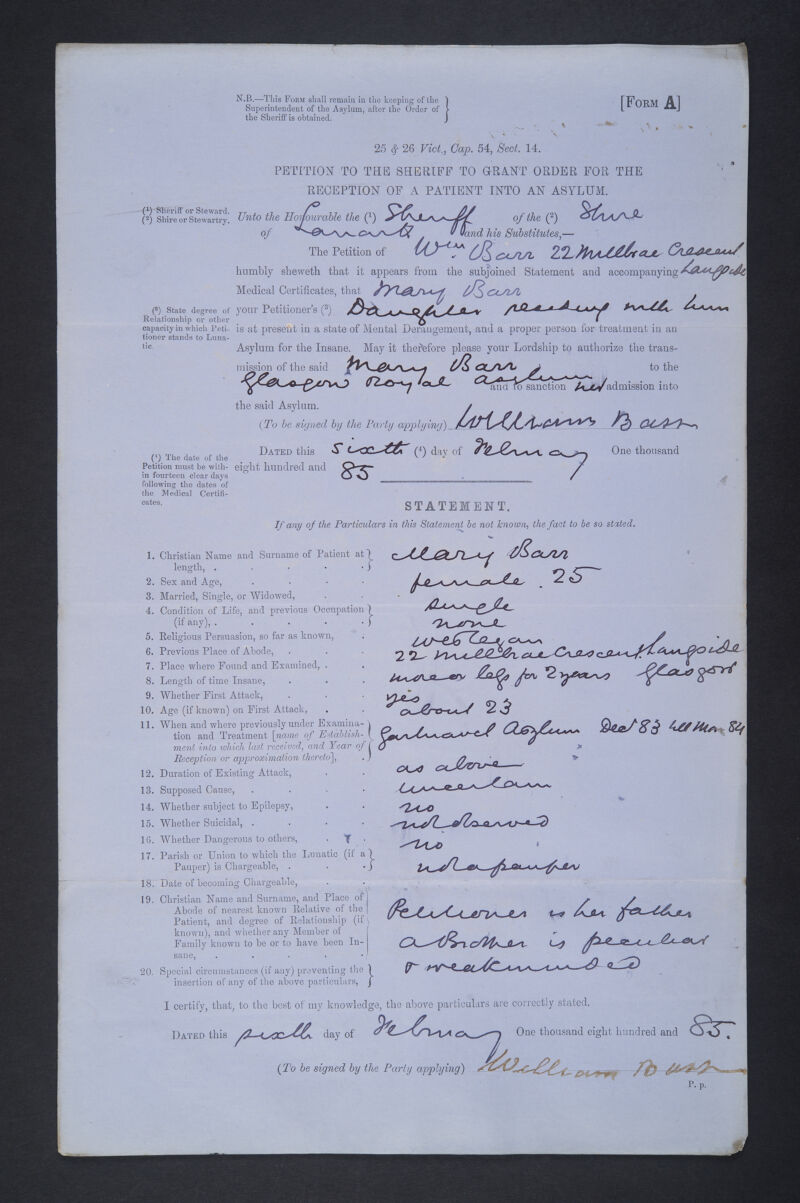 N.B.—This Form shall remain in the keeping of the
Superintendent of the Asylum, after the Order of
the Sheriff is obtained.
[Form A]
25 & 26 Vict., Cap. 54, Sect. 14.
PETITION TO THE SHERIFF TO GRANT ORDER FOR THE
RECEPTION OF A PATIENT INTO AN ASYLUM.
(1) Sheriff or Steward.
(2) Shire or Stewartry.
Unto the Honourable the (1) Sheriff of the (2) Shire
of Lanark and his Substitutes,—
The Petition of Wm. Barr 22 Millbrae Crescent
humbly sheweth that it appears from the subjoined Statement and accompanying Langside
Medical Certificates, that Mary Barr
(3) State degree of
Relationship or other
capacity in which Peti-
tioner stands to Luna-
tic.
your Petitioner's (3) Daughter residing with him
is at present in a state of Mental Derangement, and a proper person for treatment in an
Asylum for the Insane. May it therefore please your Lordship to authorize the trans-
mission of the said Mary Barr to the
Glasgow Royal Asylum and to sanction her admission into
the said Asylum.
(To be signed by the Party applying) William Barr
(4) The date of the
Petition must be with-
in fourteen clear days
following the dates of
the Medical Certifi-
cates.
Dated this sixth (4) day of February One thousand
eight hundred and 85
STATEMENT.
If any of the Particulars in this Statement be not known, the fact to be so stated.
1. Christian Name and Surname of Patient at
length, . Mary Barr
2. Sex and Age, female . 25
3. Married, Single, or Widowed, single
4. Condition of Life, and previous Occupation
(if any), . none
5. Religious Persuasion, so far as known, Wesleyan
6. Previous Place of Abode, 22 Millbrae Crescent Langside
7. Place where Found and Examined, . Glasgow
8. Length of time Insane, more or less for 2 years
9. Whether First Attack, yes
10. Age (if known) on First Attack, about 23
11. When and where previously under Examina-
tion and Treatment [name of Establish-
ment into which last received, and Year of
Reception or approximation thereto], Gartnavel Asylum Decr 83 till Mar 84
12. Duration of Existing Attack, as above
13. Supposed Cause, uncertain
14. Whether subject to Epilepsy, no
15. Whether Suicidal, . not observed
16. Whether Dangerous to others, no
17. Parish or Union to which the Lunatic (if a
Pauper) is Chargeable, . not a pauper
18. Date of becoming Chargeable,
19. Christian Name and Surname, and Place of
Abode of nearest known Relative of the
Patient, and degree of Relationship (if
known), and whether any Member of
Family known to be or to have been In-
sane,
Petitioner is her father
a Brother is peculiar
& weakminded
20. Special circumstances (if any) preventing the
insertion of any of the above particulars,
I certify, that, to the best of my knowledge, the above particulars are correctly stated.
Dated this sixth day of February One thousand eight hundred and 85.
(To be signed by the Party applying) William Barr
P. p.